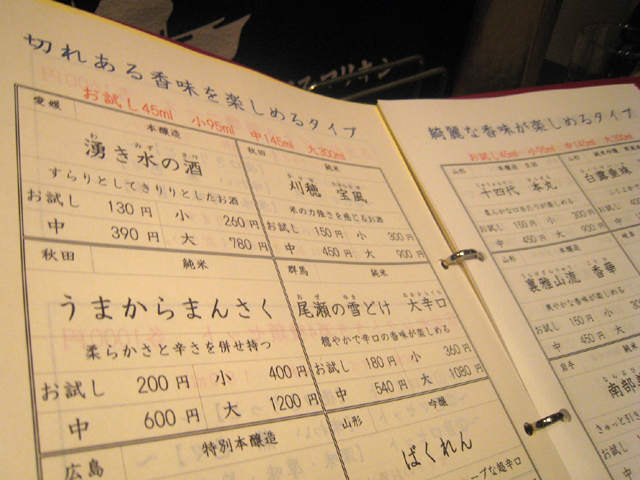 切れある香味を楽しめるタイプ
お試し45ml 小95ml 中145ml 大300ml
愛媛 本醸造
わ みず さけ
湧き水の酒
すらりとしてきりりとしたお酒
お試し 130円 小 260円
中 390円 大 780円
秋田 純米
かりほ
刈穂 宝風
米の力強さを感じるお酒
お試し 150円 小 300円
中 450円 大 900円
秋田 純米
うまからまんさく
柔らかさと辛さを併せ持つ
お試し 200円 小 400円
中 600円 大 1200円
群馬 純米
おぜ ゆき おおからくち
尾瀬の雪どけ 大辛口
穏やかで辛口の香味が楽しめる
お試し 180円 小 360円
中 540円 大 1080円
広島 特別本醸造
山形 吟醸
ばくれん
な超辛口
綺麗な香味が楽しめるタイプ
お試し45ml 小95ml 中145ml
山形 本醸造
十四代 本丸
お試し 150円 小 300円
中 450円 大 900円
山形
白露垂珠
本醸造
裏雅山流 香華
爽やかな香味が楽しめる
お試し 150円 小
中 450円
岩手
南部